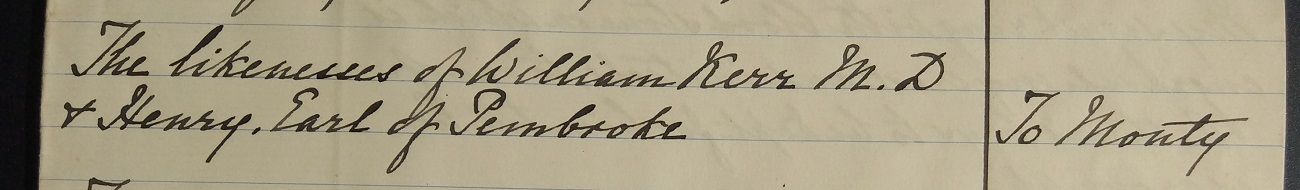 The likenesses of William Kerr M. D
& Henry, Earl of Pembroke
To Monty